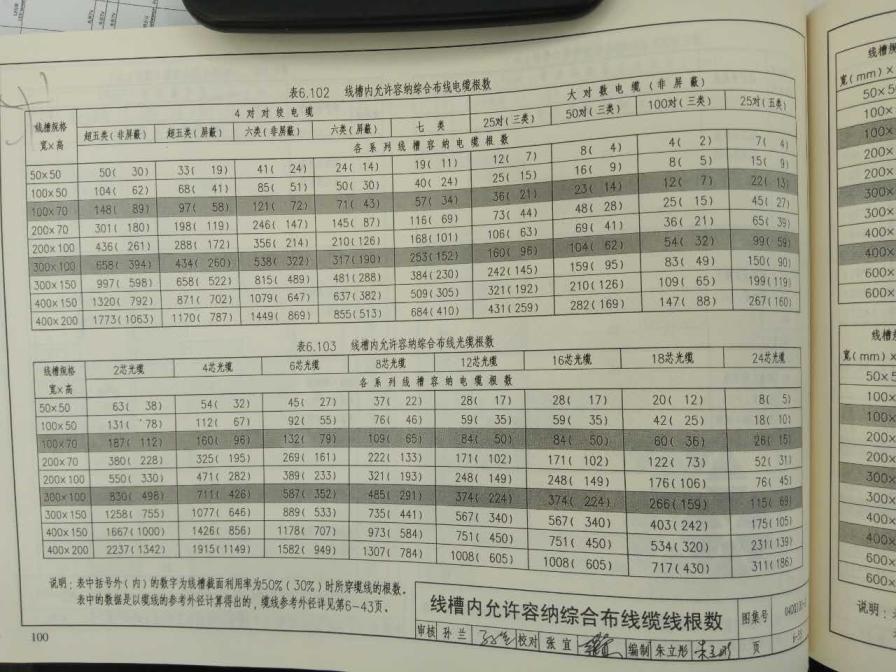 表6.102 线槽内允许容纳综合布线电缆根数
线槽规格 宽×高 4 对 对 绞 电 缆 大 对 数 电 缆 ( 非 屏 蔽 )
超五类(非屏蔽) 超五类(屏蔽) 六类(非屏蔽) 六类(屏蔽) 七 类 25对(三类) 50对(三类) 100对(三类) 25对(五类)
各 系 列 线 槽 容 纳 电 缆 根 数
50×50 50( 30) 33( 19) 41( 24) 24( 14) 19( 11) 12( 7) 8( 4) 4( 2) 7( 4)
100×50 104( 62) 68( 41) 85( 51) 50( 30) 40( 24) 25( 15) 16( 9) 8( 5) 15( 9)
100×70 148( 89) 97( 58) 121( 72) 71( 43) 57( 34) 36( 21) 23( 14) 12( 7) 22( 13)
200×70 301( 180) 198( 119) 246( 147) 145( 87) 116( 69) 73( 44) 48( 28) 25( 15) 45( 27)
200×100 436( 261) 288( 172) 356( 214) 210(126) 168(101) 106( 63) 69( 41) 36( 21) 65( 39)
300×100 658( 394) 434( 260) 538( 322) 317(190) 253(152) 160( 96) 104( 62) 54( 32) 99( 59)
300×150 997( 598) 658( 522) 815( 489) 481(288) 384(230) 242(145) 159( 95) 83( 49) 150( 90)
400×150 1320( 792) 871( 702) 1079( 647) 637(382) 509(305) 321(192) 210(126) 109( 65) 199(119)
400×200 1773(1063) 1170( 787) 1449( 869) 855(513) 684(410) 431(259) 282(169) 147( 88) 267(160)
表6.103 线槽内允许容纳综合布线光缆根数
线槽规格 宽×高 2芯光缆 4芯光缆 6芯光缆 8芯光缆 12芯光缆 16芯光缆 18芯光缆 24芯光缆
各 系 列 线 槽 容 纳 电 缆 根 数
50×50 63( 38) 54( 32) 45( 27) 37( 22) 28( 17) 28( 17) 20( 12) 8( 5)
100×50 131( 78) 112( 67) 92( 55) 76( 46) 59( 35) 59( 35) 42( 25) 18( 10)
100×70 187( 112) 160( 96) 132( 79) 109( 65) 84( 50) 84( 50) 60( 36) 26( 15)
200×70 380( 228) 325( 195) 269( 161) 222( 133) 171( 102) 171( 102) 122( 73) 52( 31)
200×100 550( 330) 471( 282) 389( 233) 321( 193) 248( 149) 248( 149) 176(106) 76( 45)
300×100 830( 498) 711( 426) 587( 352) 485( 291) 374( 224) 374( 224) 266(159) 115( 69)
300×150 1258( 755) 1077( 646) 889( 533) 735( 441) 567( 340) 567( 340) 403(242) 175(105)
400×150 1667(1000) 1426( 856) 1178( 707) 973( 584) 751( 450) 751( 450) 534( 320) 231(139)
400×200 2237(1342) 1915(1149) 1582( 949) 1307( 784) 1008( 605) 1008( 605) 717(430) 311(186)
说明:表中括号外(内)的数字为线槽截面利用率为50%(30%)时所穿缆线的根数。
表中的数据是以缆线的参考外径计算得出的,缆线参考外径详见第6-43页。
线槽内允许容纳综合布线缆线根数 图集号
审核 孙 兰 校对 张 宜 编制 朱立彤 页
100
线槽规
宽(mm)×
50×5
100×
100×
200×
200×
300×
300×
400×
400×
600×
600×
线槽
宽(mm)×
50×5
100×
100×
200×
200×
300×
300×
400×
400×
600×
600×
说明: